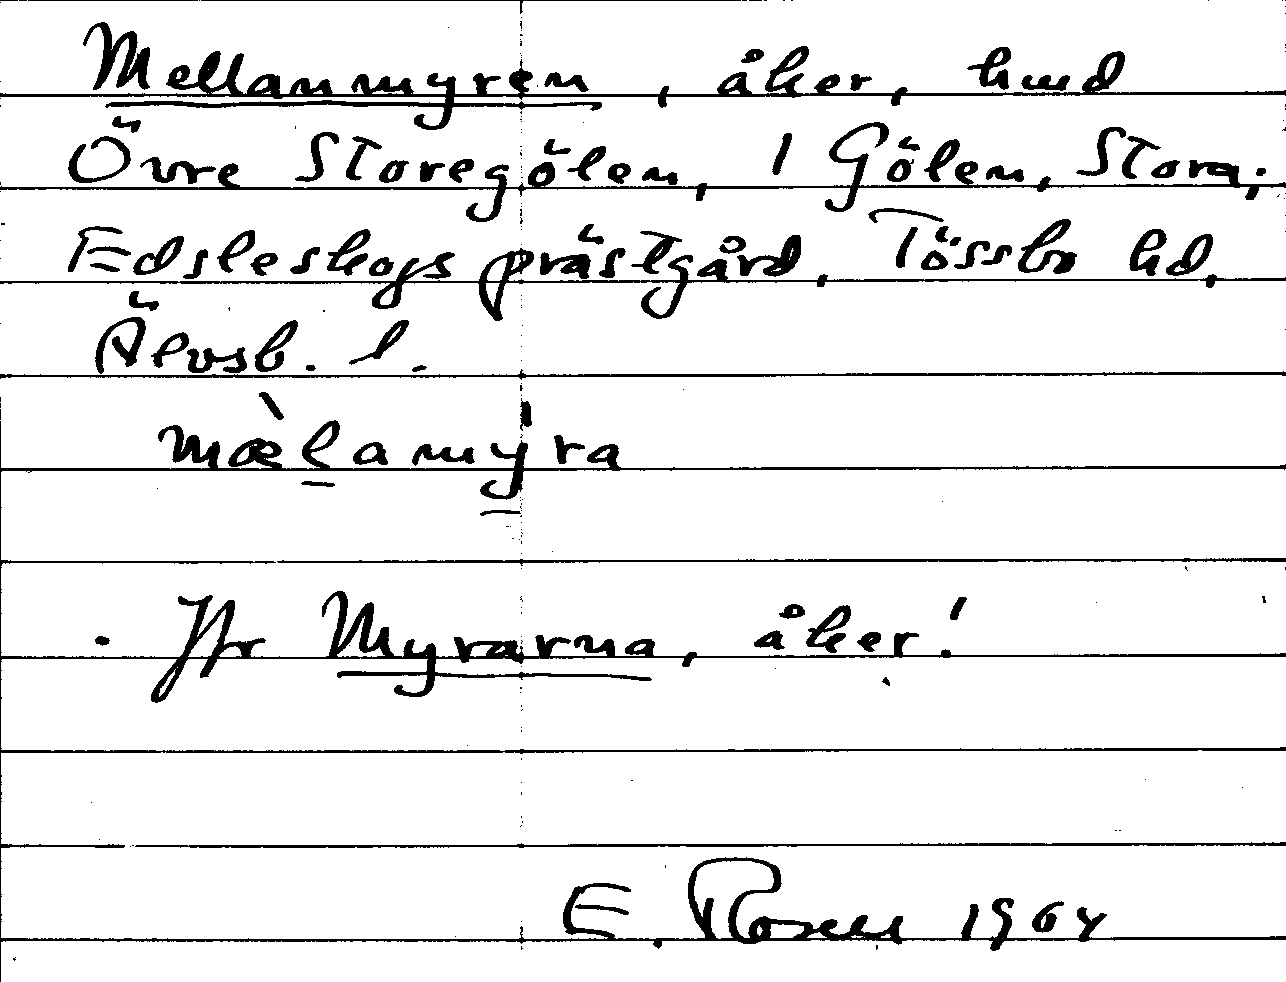 Mellanmyren, åker, hmd
Övre Storegölen, 1 Gölen, Stora;
Edsleskogs prästgård, Tössbo hd,
Älvsb. l.
mæ̀lamy̍ra
. Jfr Myrarna, åker!
E. Rosell 1964